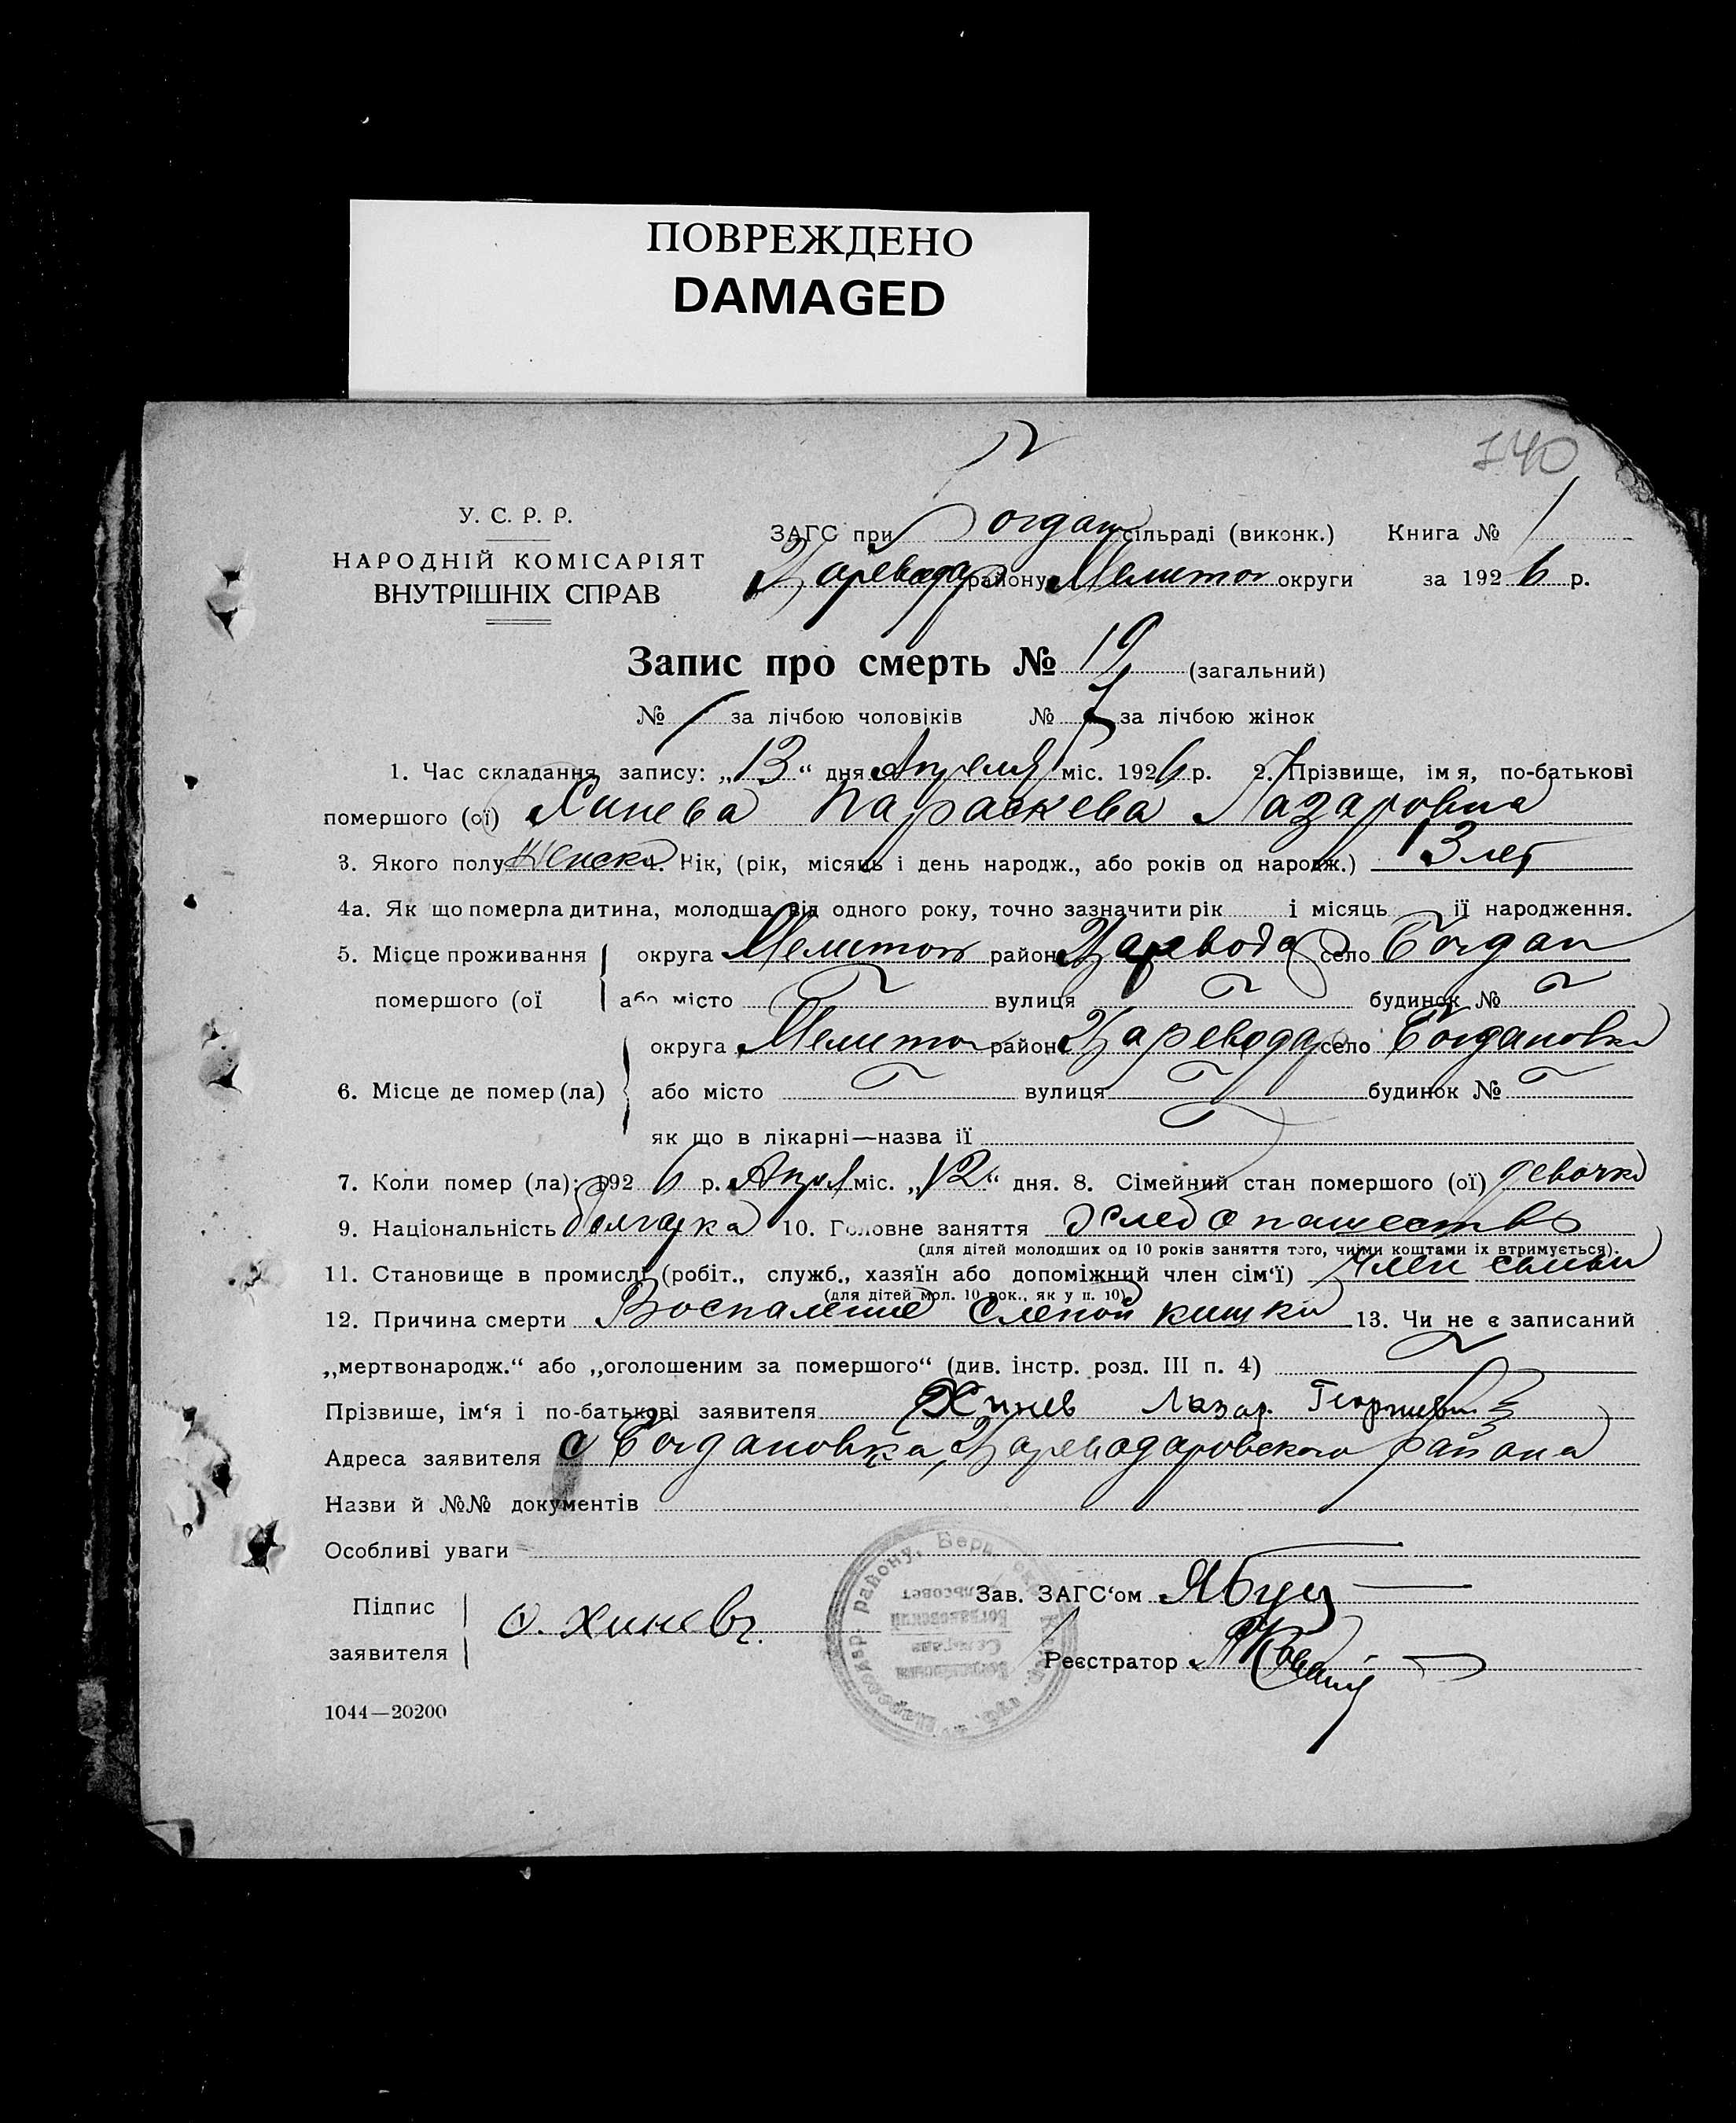 ПОВРЕЖДЕНО
DAMAGED
140
У. С. Р. Р.
НАРОДНІЙ КОМІСАРІЯТ
ВНУТРІШНІХ СПРАВ
ЗАГС при Богдан сільраді (виконк.) Книга № 1
Цареводар району Мелитоп округи за 1926 р.
Запис про смерть № 19 (загальний)
№ за лічбою чоловіків № за лічбою жінок
1. Час складання запису: „13“ дня Апреля міс. 1926 р. 2. Прізвище, ім я, по-батькові
помершого (ої) Хинева Параскева Лазаровна
3. Якого полу Женск 4. Вік, (рік, місяць і день народж., або років од народж.) 13 лет
4а. Як що померла дитина, молодша від одного року, точно зазначити рік і місяць ії народження.
5. Місце проживання округа Мелитоп район Царевода село Богдан
помершого (ої або місто вулиця будинок №
округа Мелитоп район Цареводар село Богдановка
6. Місце де помер (ла) або місто вулиця будинок №
як що в лікарні—назва ії
7. Коли помер (ла): 1926 р. Апрл міс. „12“ дня. 8. Сімейний стан помершого (ої) девочка
9. Національність болгарка 10. Головне заняття Хлебопашество
(для дітей молодших од 10 років заняття того, чиїми коштами їх втримується).
11. Становище в промислі (робіт., служб., хазяїн або допоміжний член сім‘ї) Член семьи
(для дітей мол. 10 рок., як у п. 10)
12. Причина смерти Воспаление слепой кишки 13. Чи не є записаний
„мертвонародж.“ або „оголошеним за помершого“ (див. інстр. розд. III п. 4)
Прізвище, ім‘я і по-батькові заявителя Хинев Лазар Георгиевич
Адреса заявителя с Богдановка, Цареводаровского района
Назви й №№ документів
Особливі уваги
Зав. ЗАГС‘ом
Підпис
заявителя Хиневъ
Реєстратор
1044—20200